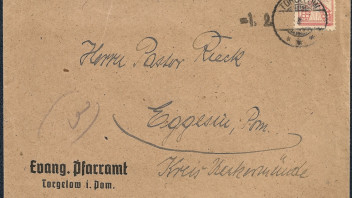 TORGELOW
=1. 2
Herrn Pastor Rieck
Eggesin, Pom.
Kreis Ueckermünde
Evang. Pfarramt
Torgelow i. Pom.